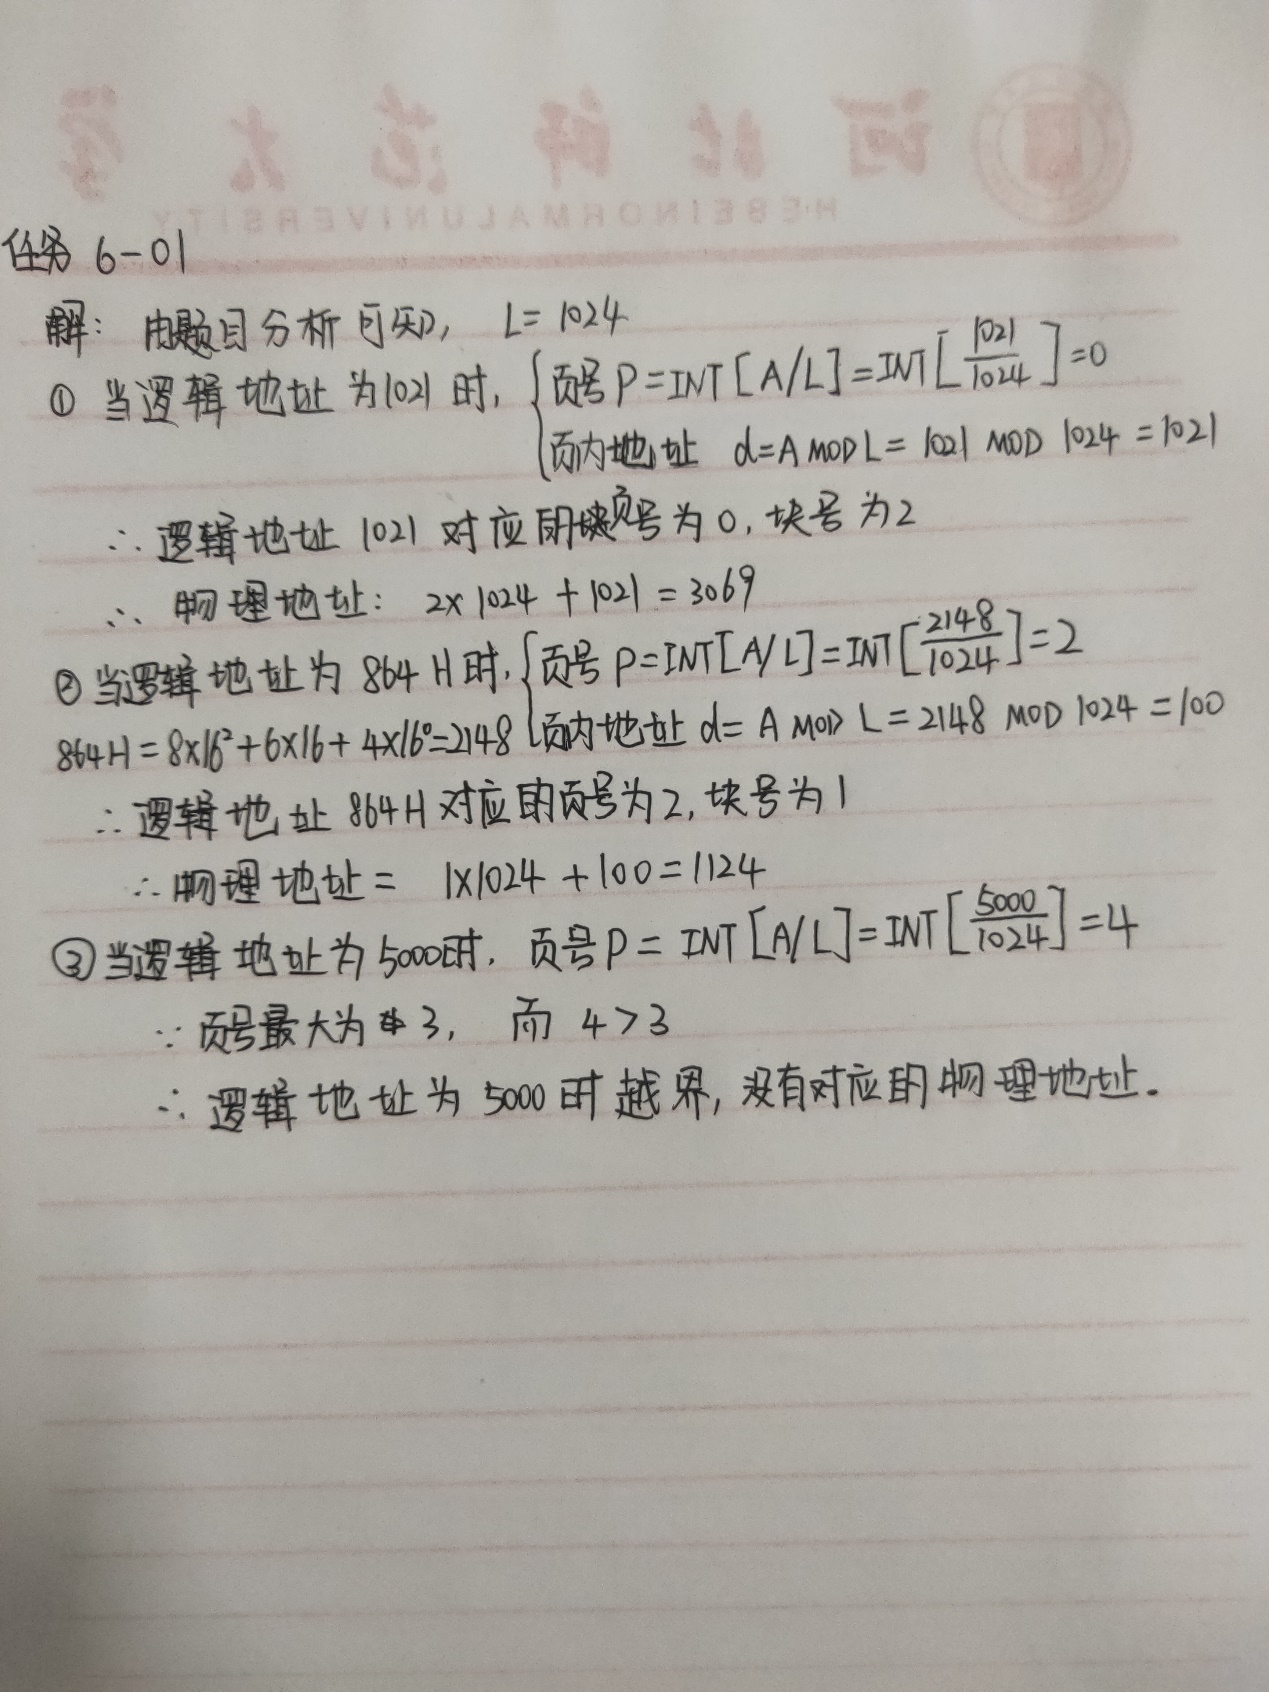 河北师范大学
HEBEINORMALUNIVERSITY
任务 6-01
解: 由题目分析可知, L=1024
① 当逻辑地址为1021时, { 页号 P=INT[A/L]=INT[1021/1024]=0
页内地址 d=A MOD L= 1021 MOD 1024 =1021
∴ 逻辑地址 1021 对应的页号为0, 块号为2
∴ 物理地址: 2×1024+1021=3069
② 当逻辑地址为 864H时, { 页号 P=INT[A/L]=INT[2148/1024]=2
864H=8×16²+6×16+4×16⁰=2148 页内地址 d= A MOD L=2148 MOD 1024=100
∴ 逻辑地址 864H 对应的页号为2, 块号为1
∴ 物理地址= 1×1024+100=1124
③ 当逻辑地址为5000时, 页号P= INT[A/L]=INT[5000/1024]=4
∵ 页号最大为 3, 而 4>3
∴ 逻辑地址为 5000时越界, 没有对应的物理地址.